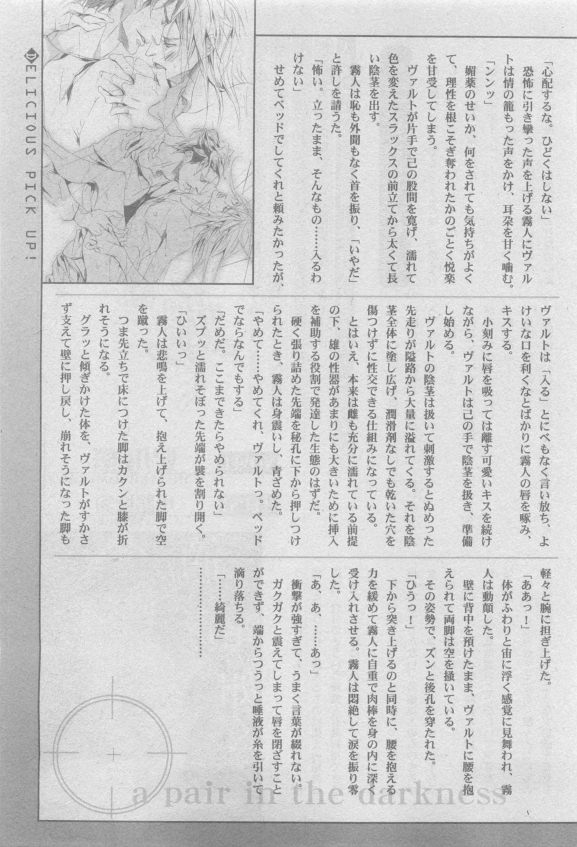 DELICIOUS PICK UP!
「心配するな。ひどくはしない」
恐怖に引き攣った声を上げる霧人にヴァル
トは情の籠もった声をかけ、耳朶を甘く噛む。
「ンンッ」
媚薬のせいか、何をされても気持ちがよく
て、理性を根こそぎ奪われたかのごとく悦楽
を甘受してしまう。
ヴァルトが片手で己の股間を寛げ、濡れて
色を変えたスラックスの前立てから太くて長
い陰茎を出す。
霧人は恥も外聞もなく首を振り、「いやだ」
と許しを請うた。
「怖い。立ったまま、そんなもの……入るわ
けない」
せめてベッドでしてくれと頼みたかったが、
ヴァルトは「入る」とにべもなく言い放ち、よ
けいな口を利くなとばかりに霧人の唇を啄み、
キスする。
小刻みに唇を吸っては離す可愛いキスを続け
ながら、ヴァルトは己の手で陰茎を扱き、準備
し始める。
ヴァルトの陰茎は扱いて刺激するとぬめった
先走りが隘路から大量に溢れてくる。それを陰
茎全体に塗し広げ、潤滑剤なしでも乾いた穴を
傷つけずに性交できる仕組みになっている。
とはいえ、本来は雌も充分に濡れている前提
の下、雄の性器があまりにも大きいために挿入
を補助する役割で発達した生態のはずだ。
硬く張り詰めた先端を秘孔に下から押しつけ
られたとき、霧人は身震いし、青ざめた。
「やめて……やめてくれ、ヴァルトっ。ベッド
でならなんでもする」
「だめだ。ここまできたらやめられない」
ズプッと濡れそぼった先端が襞を割り開く。
「ひいいっ」
霧人は悲鳴を上げて、抱え上げられた脚で空
を蹴った。
つま先立ちで床につけた脚はカクンと膝が折
れそうになる。
グラッと傾ぎかけた体を、ヴァルトがすかさ
ず支えて壁に押し戻し、崩れそうになった脚も
軽々と腕に担ぎ上げた。
「ああっ！」
体がふわりと宙に浮く感覚に見舞われ、霧
人は動顛した。
壁に背中を預けたまま、ヴァルトに腰を抱
えられて両脚は空を掻いている。
その姿勢で、ズンと後孔を穿たれた。
「ひうっ！」
下から突き上げるのと同時に、腰を抱える
力を緩めて霧人に自重で肉棒を身の内に深く
受け入れさせる。霧人は悶絶して涙を振り零
した。
「あ、あ、……あっ」
衝撃が強すぎて、うまく言葉が綴れない。
ガクガクと震えてしまって唇を閉ざすこと
ができず、端からつうっと唾液が糸を引いて
滴り落ちる。
「……綺麗だ」
…………………………
a pair in the darkness